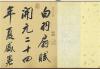 白羽扇賦
開元二十四
年夏盛暑